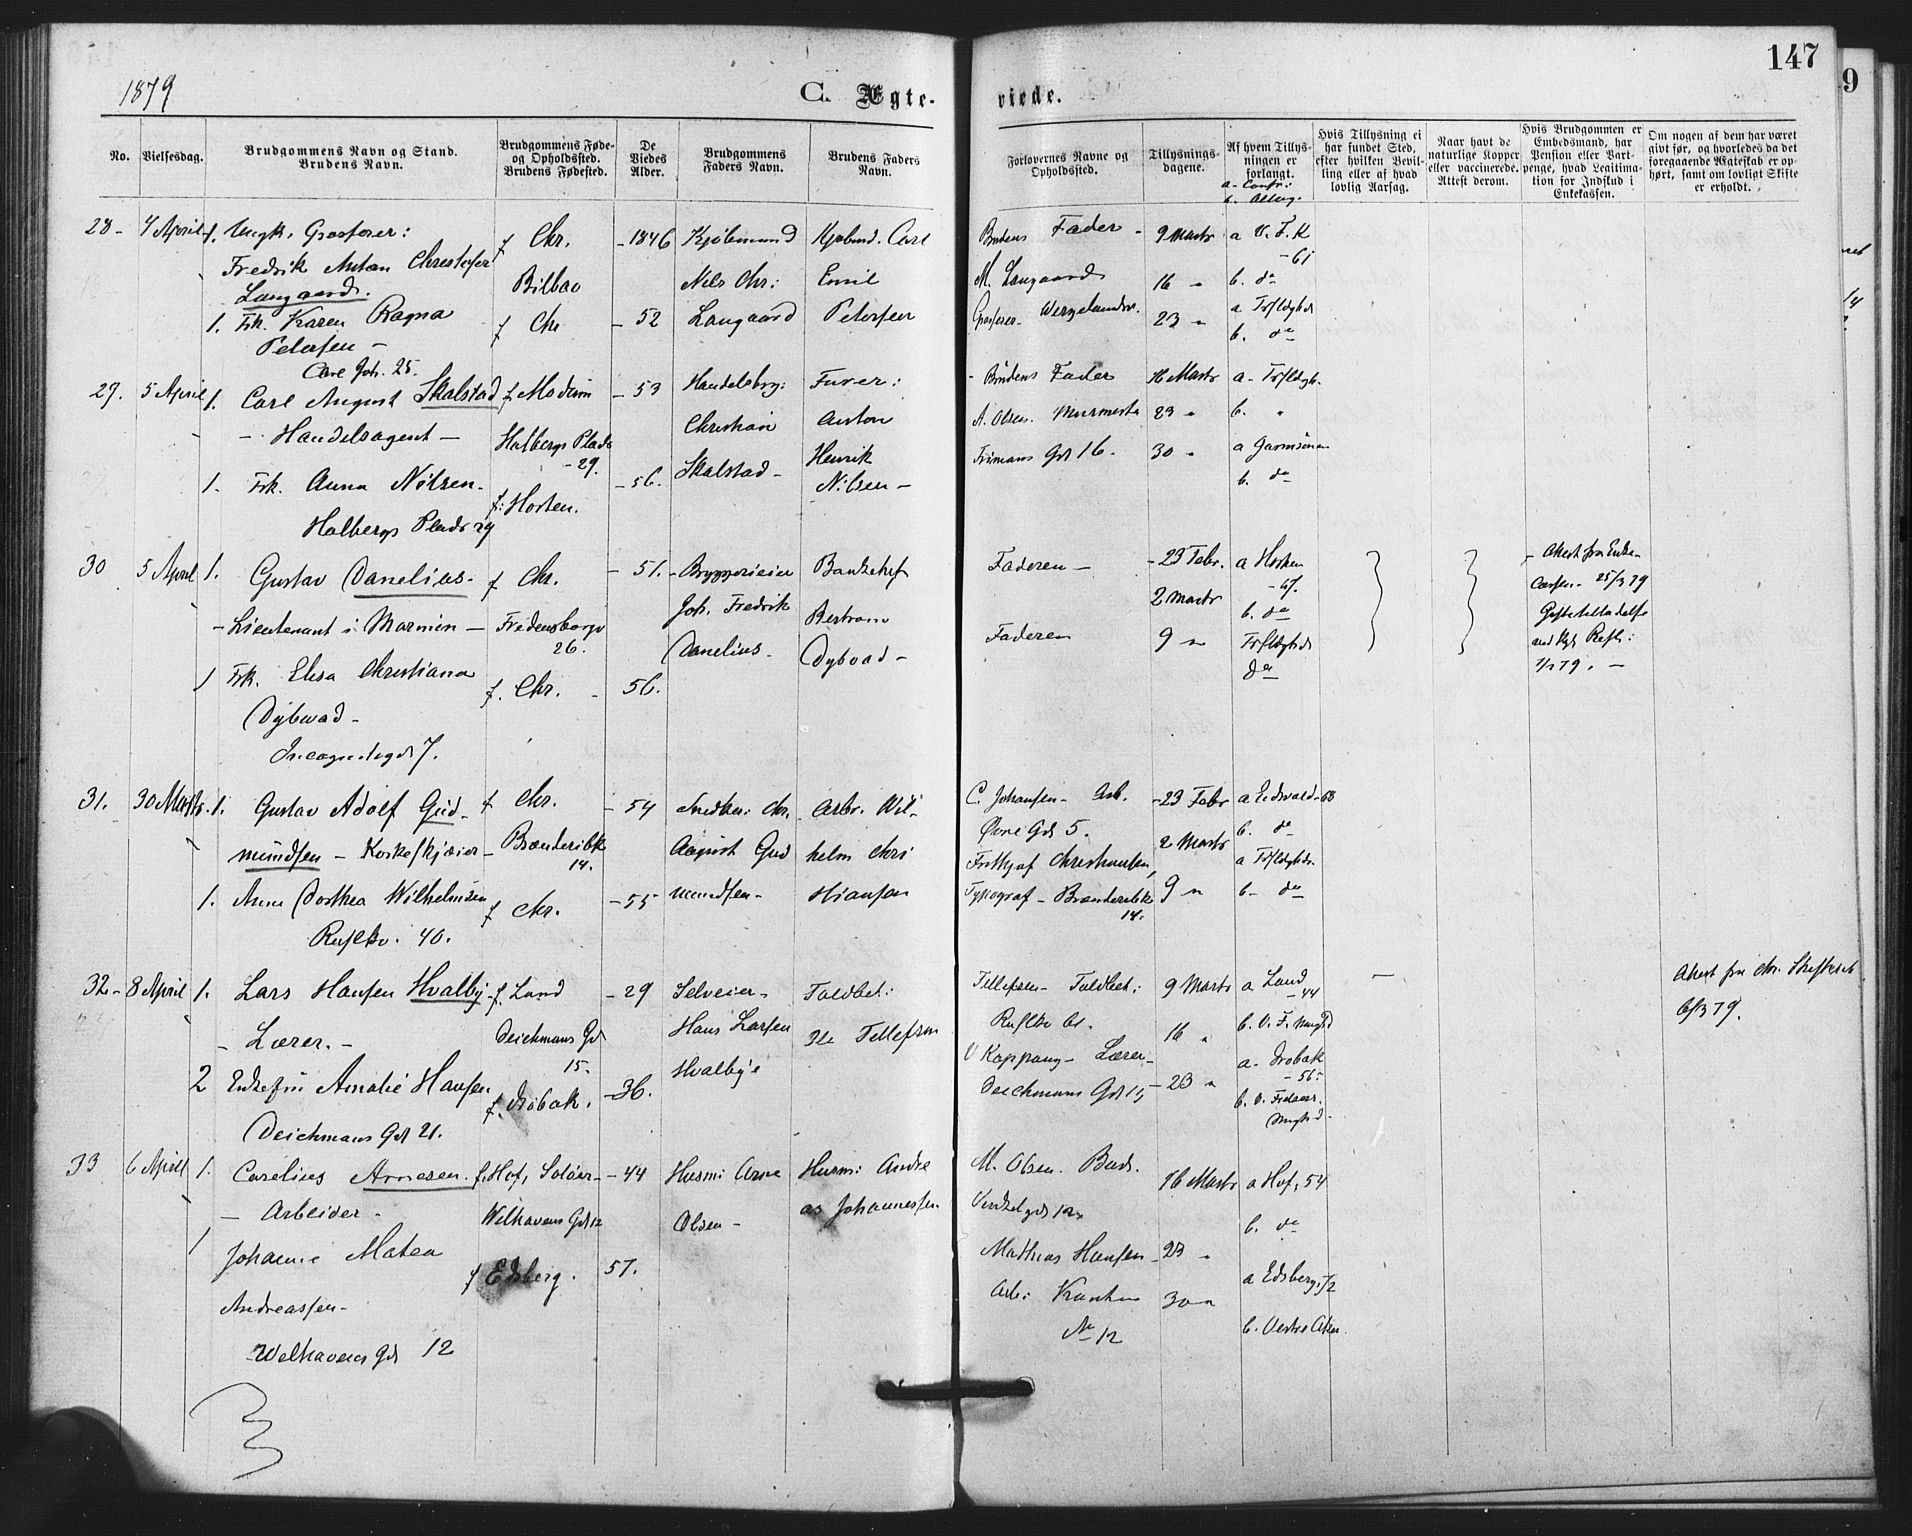 1879
C. Ægte-
viede.
147
9
No.
Vielsesdag.
Brudgommens Navn og Stand.
Brudens Navn.
Brudgommens Føde-
og Opholdssted.
Brudens Fødested.
De
Viedes
Alder.
Brudgommens
Faders Navn.
Brudens Faders
Navn.
Forlovernes Navne og
Opholdssted.
Tillysnings-
dagene.
Af hvem Tillys-
ningen er
forlangt.
Hvis Tillysning ei
har fundet Sted,
efter hvilken Bevil-
ling eller af hvad
lovlig Aarsag.
Naar havt de
naturlige Kopper
eller vaccinerede.
Attest derom.
Hvis Brudgommen er
Embedsmand, har
Pension eller Vart-
penge, hvad Legitima-
tion for Indskud i
Enkekassen.
Om nogen af dem har været
givt før, og hvorledes da det
foregaaende Ægteskab er op-
hørt, samt om lovligt Skifte
er erholdt.
a- Confr:
28- 4 April 1. Ungk. Grosserer: f Chr. -1846 Kjøbmand Kjøbmd. Carl Brudens Fader - 9 Marts a V. F. K
-61
Fredrik Anton Christofer Bilbao Nils Chr: Emil M. Langaard 16 " b. do
Langaard.
1. Frk. Karen Ragna f Chr - 52 Langaard Petersen Grosserer 23 " a Trfldgh
Petersen - b. do
Carl Joh. 25.
29. 5 April 1. Carl August Skalstad f Modum - 53 Handelsbg: Furer: - Brudens Fader 16 Marts a- Trfldgh.
- Handelsagent - Holbergs Plads Christian Anton A. Olsen. Murmester 23 " b. "
-29.
1. Frk. Anna Nilsen. f: Horten. -56. Skalstad- Henrik Gd 16. 30 " a Garnisonen
Nilsen - b. do
Holbergs Plads 29
30 5 April 1. Gustav Danelius- f Chr. - 51. -Bryggerieier Faderen - -23 Febr. a Horten - Attest fra Enke-
-67.
- Lieutenant i Marinen - Fredensborgv Joh. Fredrik Bertram 2 Marts b. do cassen- 25/3 79
26.
Danelius- Dybwad - Faderen 9 " Trfldgh
do
1 Frk. Elisa Christiana f. Chr. - 56.
Dybwad-
Incognitogd 7.
31. 30 Marts. 1. Gustav Adolf Gud- f Chr. - 54 Snedker Chr. Arbr. Wil- C. Johansen- Arb. -23 Febr a Eidsvold-68
mundsen - - Brænderibk August Gud helm Chri Øvre Gd 5. 2 Marts b. do
14.
Frithjof Christiansen, a Trfldgh.
1. Anne Dorthea Wilhelmsen f Chr. - 55 mundsen- stiansen Typograf - Brænderibk 9 " b- do
14.
Rusløkv. 40.
32- 8 April 1. Lars Hansen Hvalby f. Land - 29 Selveier- Toldbet: Tellefsen- Toldbet: 9 Marts a Land - Attest fra Chr. Skifteret
-44
- Lærer. - Deichmans Gd Hans Larsen Ole Tellefsen 16 " b. V. F. 6/3 79.
15-
2 Enkefru Amalie Hansen f. Drøbak. -36. Hvalbye Koppang- Lærer- -23 " a- Drøbak
-56-
Deichmans Gd 15
Deichmans Gd 21.
33 6 April 1. Carelius Arnesen. f. Hof, Soløer- -44 Husm: Arne Husm: Andre M. Olsen. Bud. 16 Marts a Hof, 54
- Arbeider - Welhavens Gd 12 Olsen - as Johannessen b. do
1 Johanne Matea f Edsberg. 57. Mathias Hansen- 23 " a Edsberg, 72
Andreassen- Arb: 30 " b. Vestre Aker.
No 12
Welhavens Gd 12